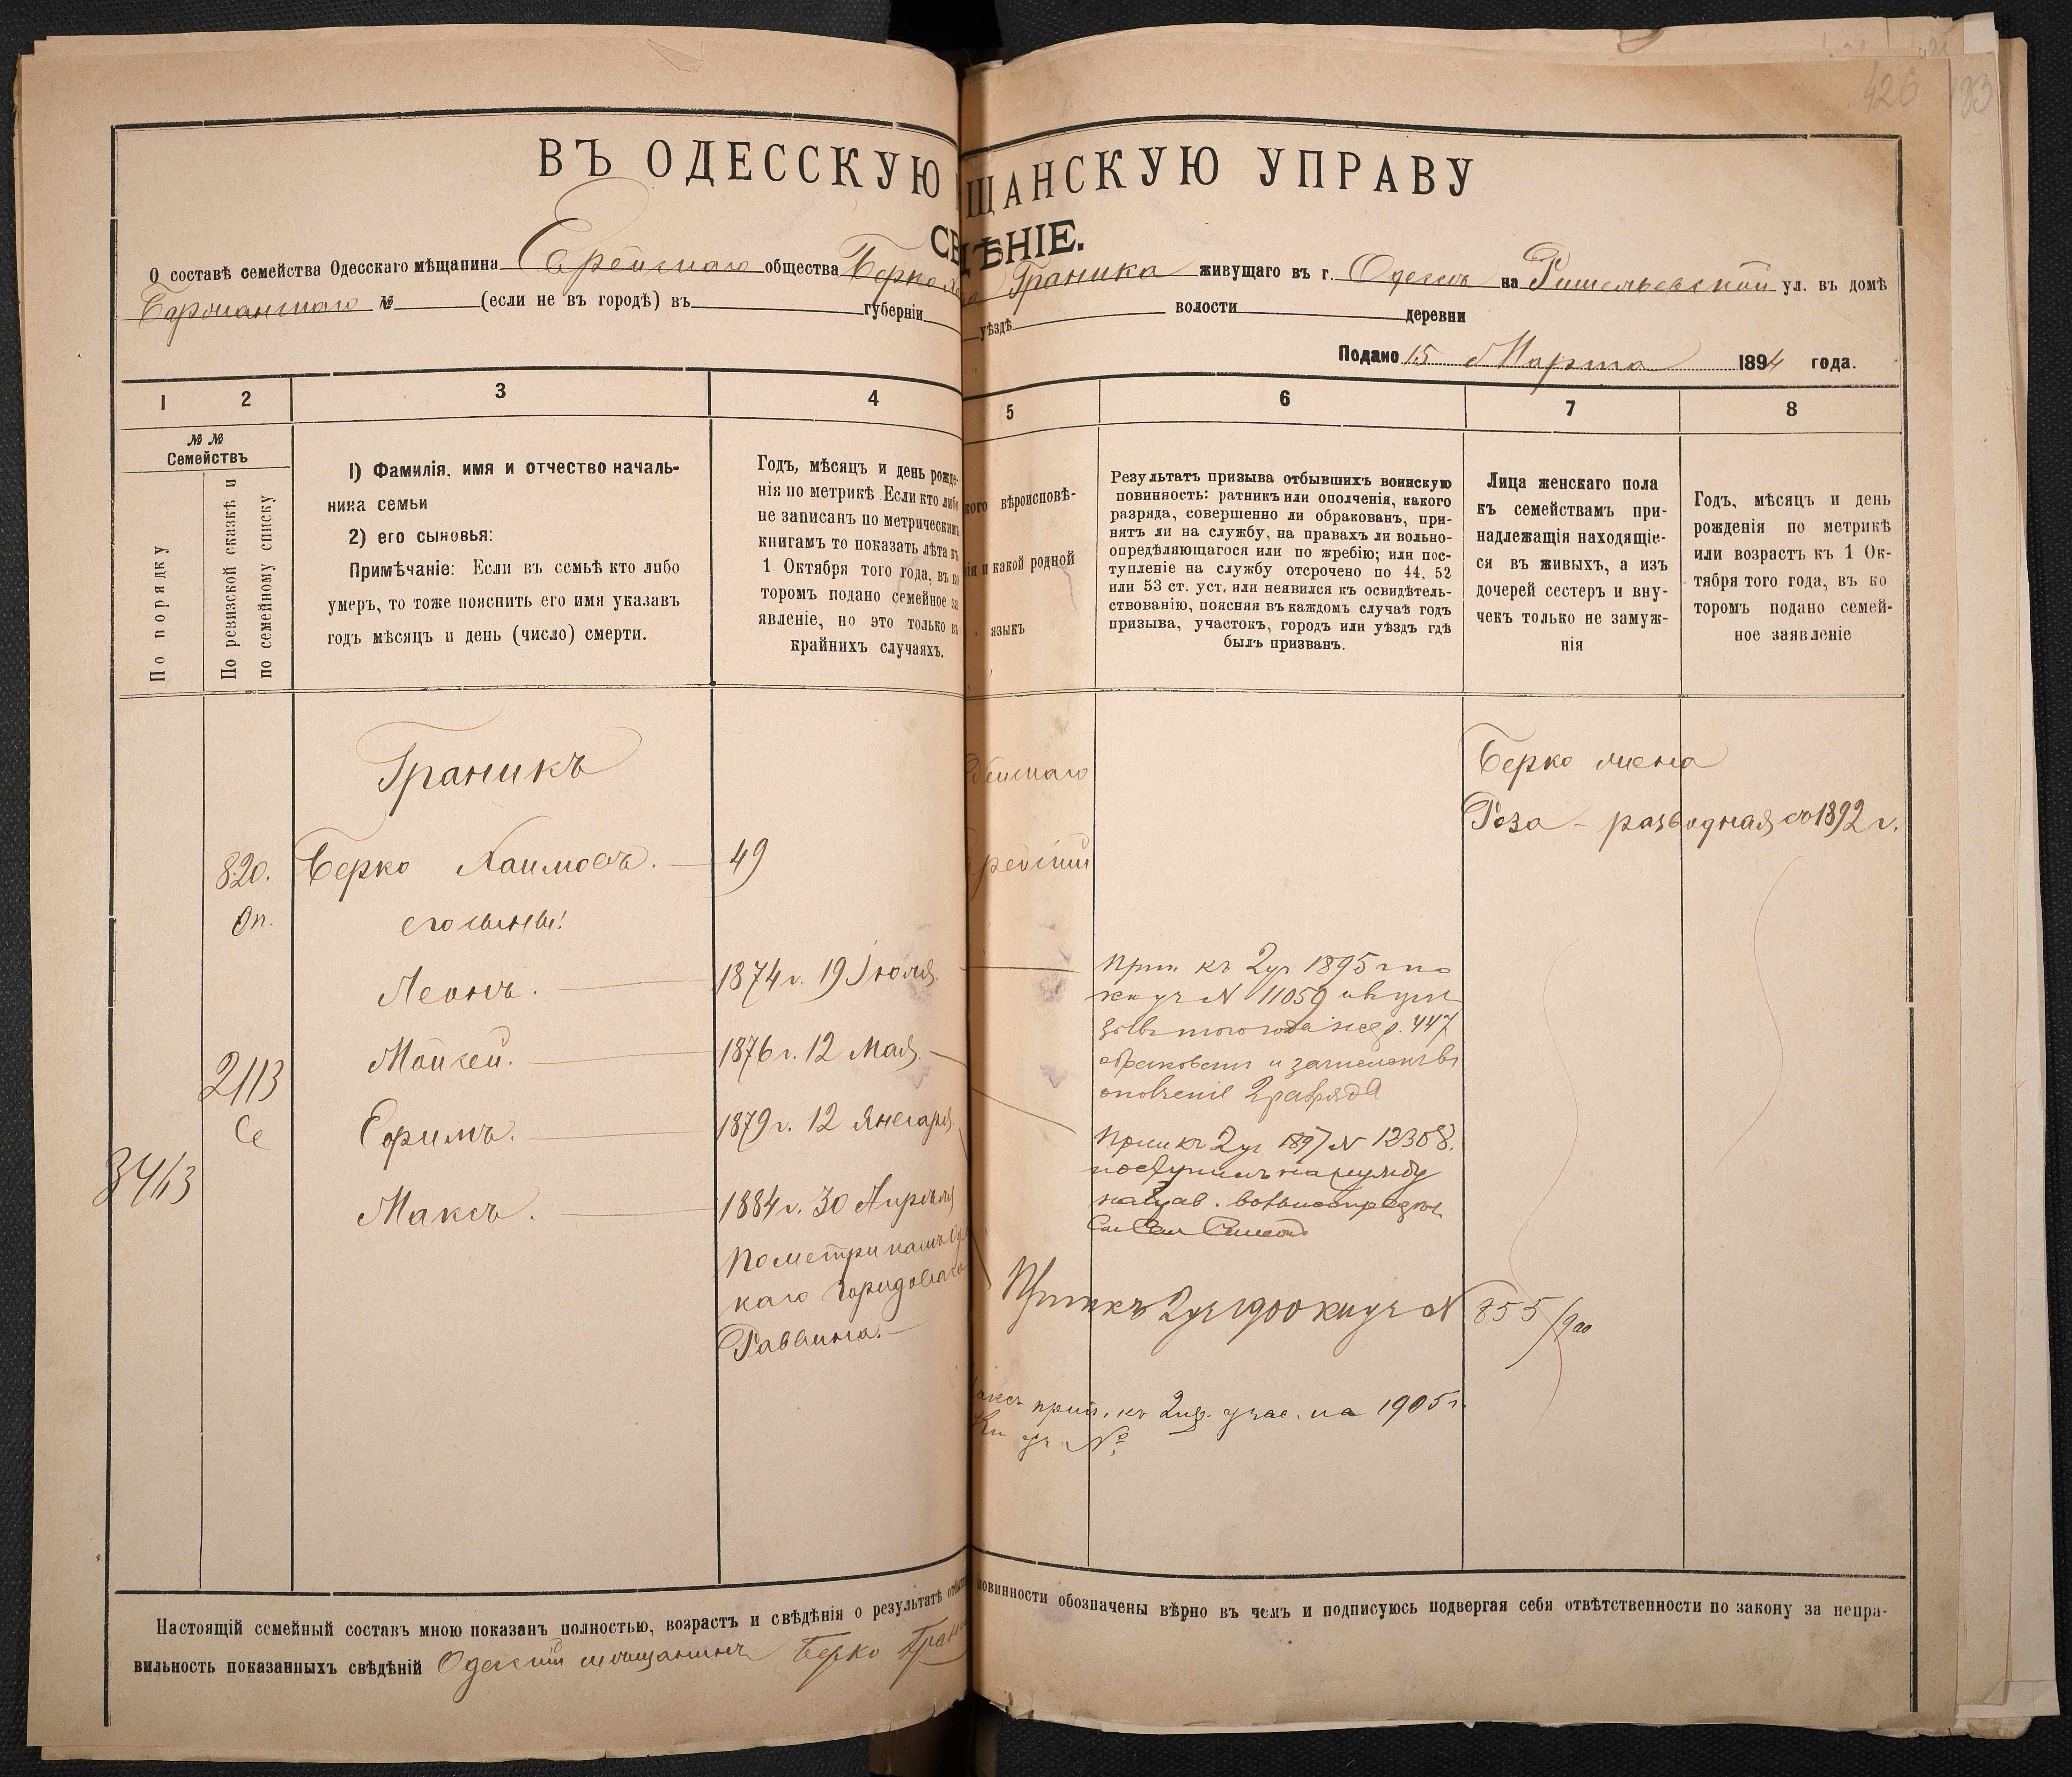 426
183
ВЪ ОДЕССКУЮ ЩАНСКУЮ УПРАВУ
СВ ДѢНІЕ.
О составѣ семейства Одесскаго мѣщанина Еврейскаго общества Берко Граника живущаго въ г. Одессѣ на Ришельевской ул. въ домѣ
№ (если не въ городѣ) въ губерніи уѣздѣ волости деревни
Подано 15 Марта 1894 года.
1 2 3 4 5 6 7 8
№ №
Семействъ
По порядку
По ревизской сказкѣ и
по семейному списку
1) Фамилія, имя и отчество началь-
ника семьи
2) его сыновья:
Примѣчаніе: Если въ семьѣ кто либо
умеръ, то тоже пояснить его имя указавъ
годъ мѣсяцъ и день (число) смерти.
Годъ, мѣсяцъ и день рожде-
нія по метрикѣ Если кто либо
не записанъ по метрическимъ
книгамъ то показать лѣта къ
1 Октября того года, въ ко
торомъ подано семейное за
явленіе, но это только въ
крайнихъ случаяхъ.
кого вѣроисповѣ-
нія и какой родной
языкъ
Результатъ призыва отбывшихъ воинскую
повинность: ратникъ или ополченія, какого
разряда, совершенно ли обракованъ, при-
нятъ ли на службу, на правахъ ли вольно-
опредѣляющагося или по жребію; или пос-
тупленіе на службу отсрочено по 44, 52
или 53 ст. уст, или неявился къ освидѣтель-
ствованію, поясняя въ каждомъ случаѣ годъ
призыва, участокъ, городъ или уѣздъ гдѣ
былъ призванъ.
Лица женскаго пола
къ семействамъ при-
надлежащія находящіе-
ся въ живыхъ, а изъ
дочерей сестеръ и вну-
чекъ только не замуж-
нія
Годъ, мѣсяцъ и день
рожденія по метрикѣ
или возрастъ къ 1 Ок-
тября того года, въ ко
торомъ подано семей-
ное заявленіе
Граникъ
Берко жена
Роза - разводная съ 1892 г.
820. Берко Хаимовъ. 49
Оп. его сыновья:
Леонъ. 1874 г. 19 Іюля.
Мойсей. 1876 г. 12 Мая.
2113
Се
Ефимъ. 1879 г. 12 Января
3413
Максъ. 1884 г. 30 Апрѣля
По метрикамъ
каго Городоваго
Раввина.
Еврейскаго
Еврейскій
Прип. къ 2 уч 1895 г по
кн уч N 11059
того года жер. 447
обракованъ и зачисленъ въ
ополченіе 2 разряда
Прип къ 2 уч 1897 N 12308.
поступилъ на службу
на прав. вольноопредѣл
Прип къ 2 уч 1900 кн уч N 855/900
Максъ прип. къ 2 пр. учас. на 1905 г.
Кн уч №
Настоящій семейный составъ мною показанъ полностью, возрастъ и свѣдѣнія о результатѣ отбыт повинности обозначены вѣрно въ чемъ и подписуюсь подвергая себя отвѣтственности по закону за непра-
вильность показанныхъ свѣдѣній Одесскій мѣщанинъ Берко Грани